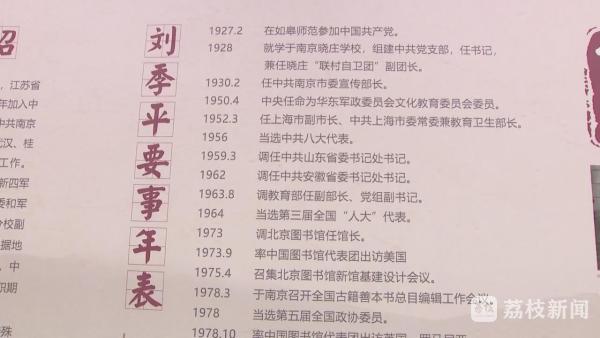 绍
，江苏省
年加入中
中共南京
武汉、桂
工作。
新四军
委和军
分校副
据地
、中
职期
特殊
刘季平要事年表
1927.2 在如皋师范参加中国共产党。
1928 就学于南京晓庄学校，组建中共党支部，任书记，
兼任晓庄“联村自卫团”副团长。
1930.2 任中共南京市委宣传部长。
1950.4 中央任命为华东军政委员会文化教育委员会委员。
1952.3 任上海市副市长、中共上海市委常委兼教育卫生部长。
1956 当选中共八大代表。
1959.3 调任中共山东省委书记处书记。
1962 调任中共安徽省委书记处书记。
1963.8 调教育部任副部长、党组副书记。
1964 当选第三届全国“人大”代表。
1973 调北京图书馆任馆长。
1973.9 率中国图书馆代表团出访美国
1975.4 召集北京图书馆新馆基建设计会议。
1978.3 于南京召开全国古籍善本书总目编辑工作会议。
1978 当选第五届全国政协委员。
1978.10 率中国图书馆代表团出访英国
荔枝新闻